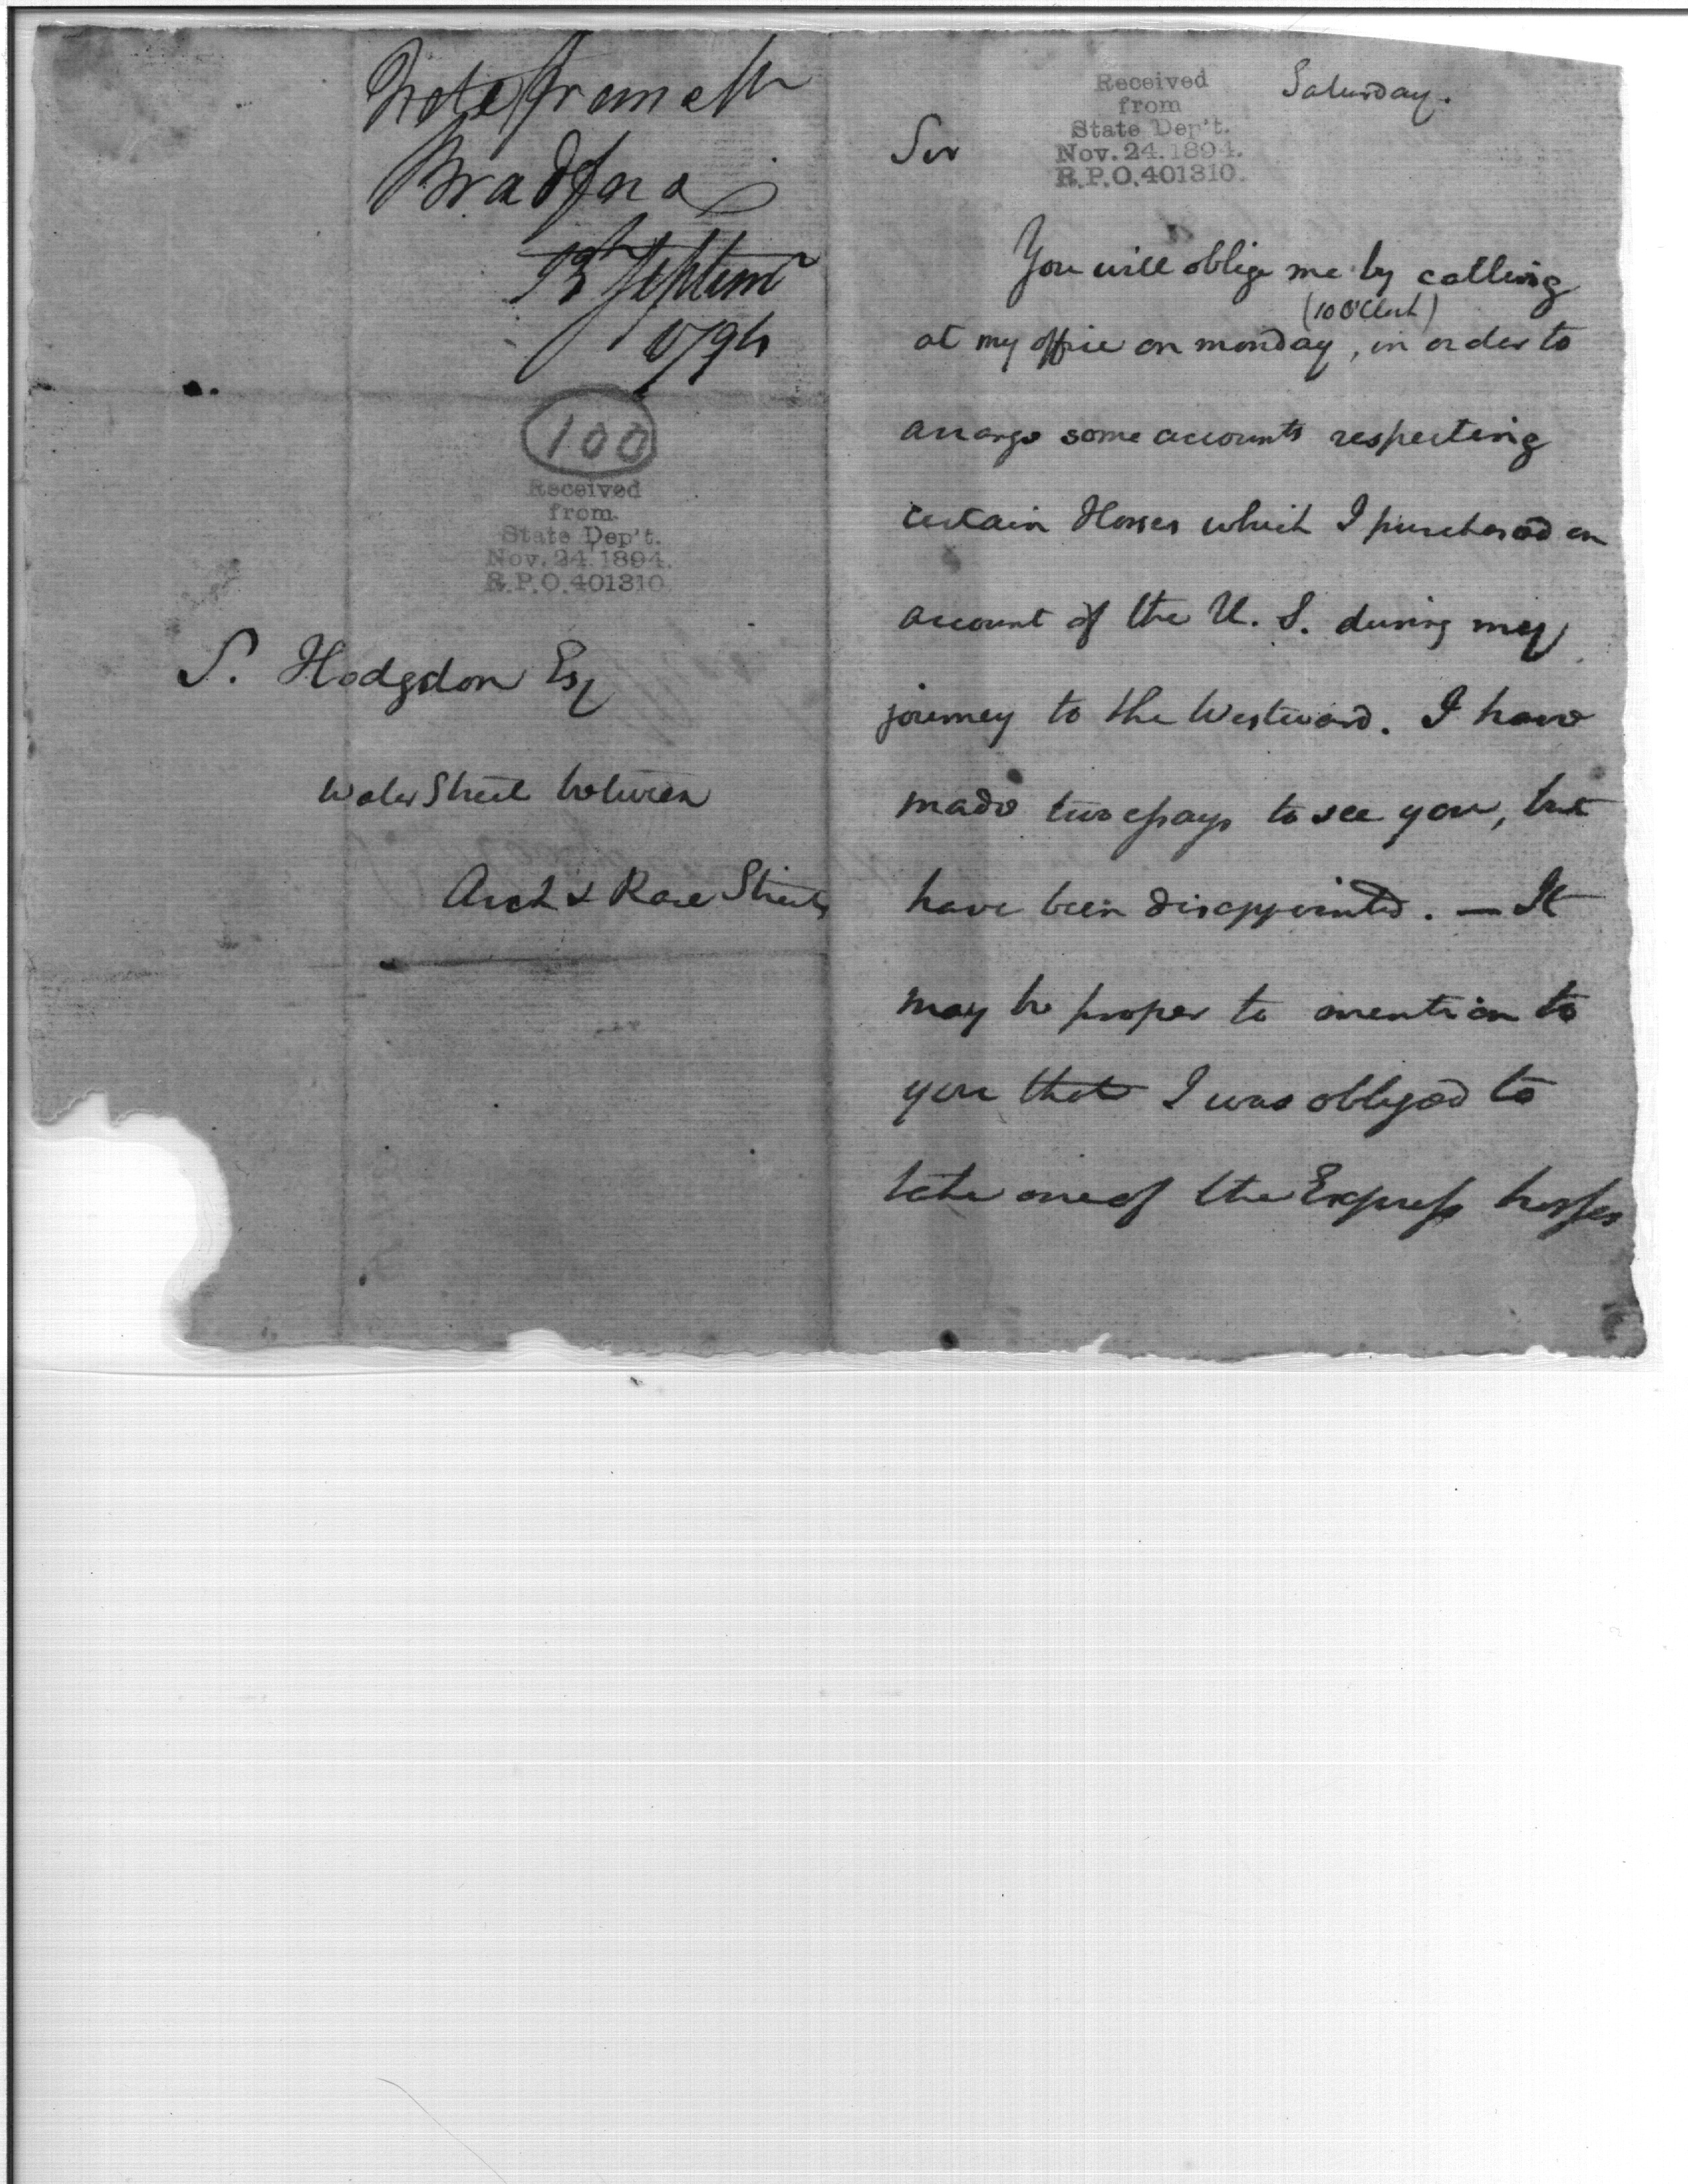 Note from Mr
Bradford
13th Septemr
1794
100
Received
from
State Dep't.
Nov. 24. 1894.
R.P.O. 401310.
S. Hodgdon Esq
Water Street between
Arch & Race Streets
Received
from
State Dep't.
Nov. 24. 1894.
R.P.O. 401310.
Saturday.
Sir
You will oblige me by calling
(10 O'Clock)
at my office on monday, in order to
arrange some accounts respecting
certain Horses which I purchased on
account of the U. S. during my
journey to the Westward. I have
made two essays to see you, but
have been disappointed. — It
may be proper to mention to
you that I was obliged to
take one of the Express horses